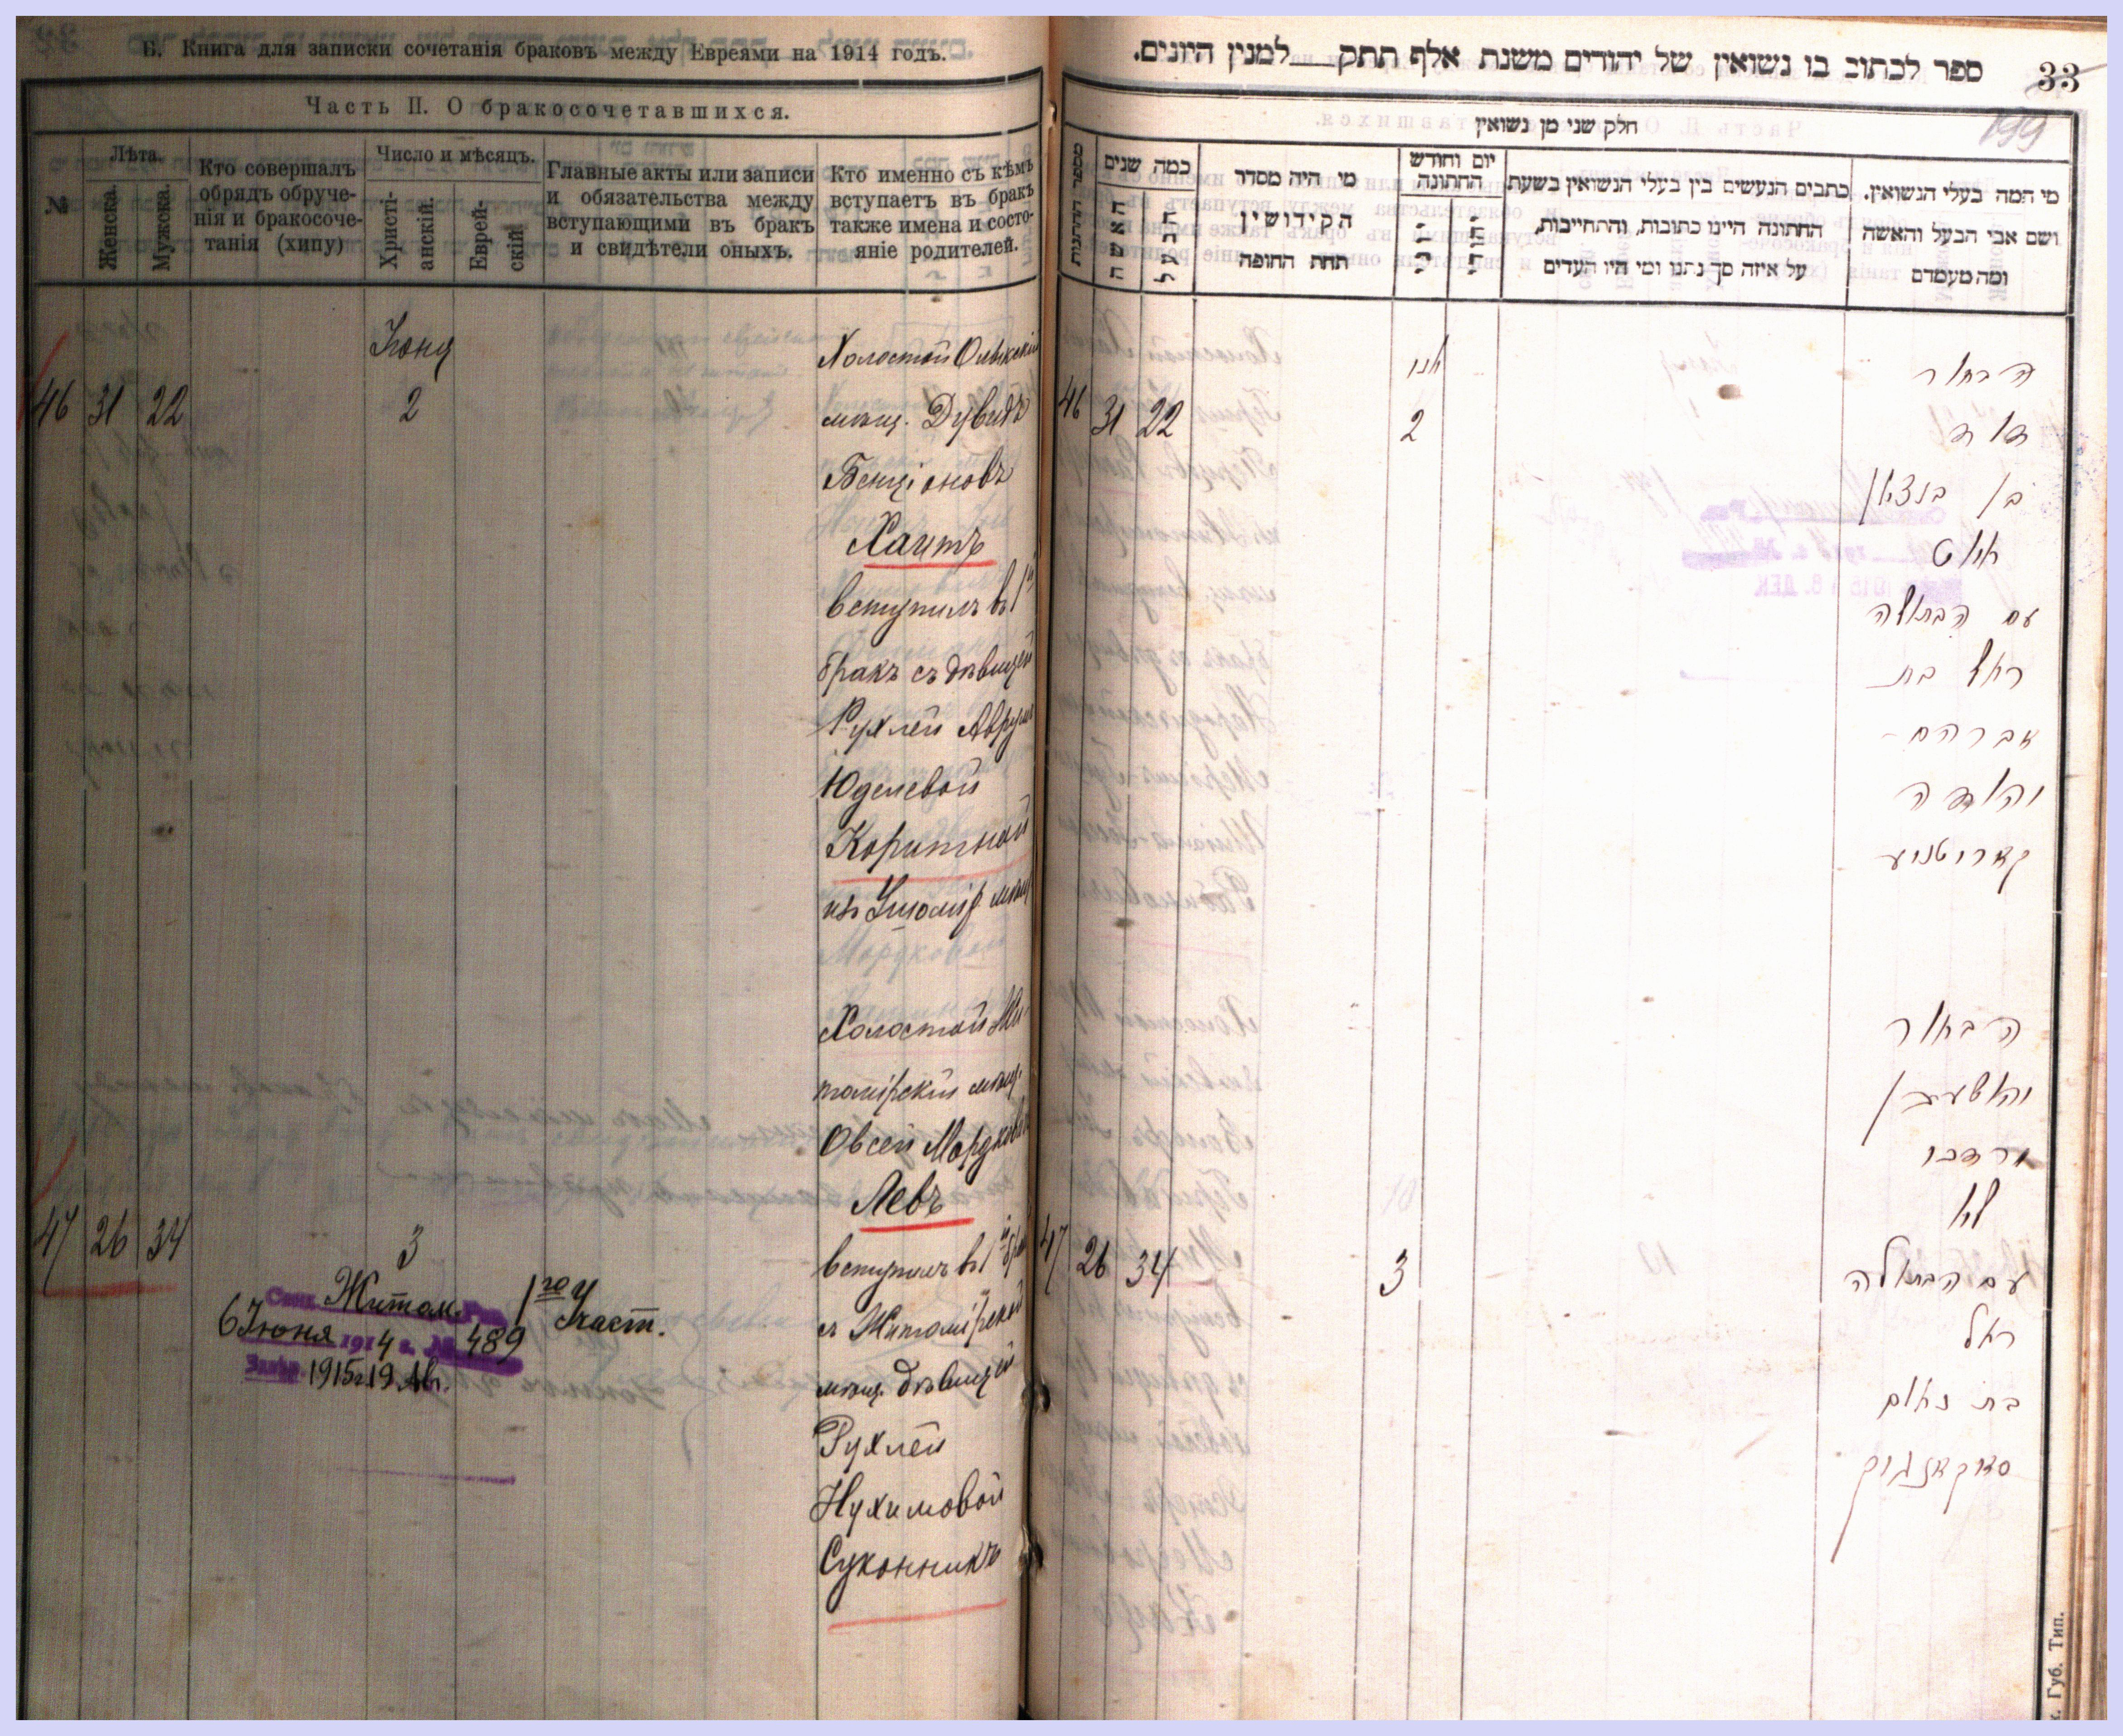 Б. Книга для записки сочетанія браковъ между Евреями на 1914 годъ.
Часть II. О бракосочетавшихся.
№
Лѣта.
Женска.
Мужска.
Кто совершалъ
обрядъ обруче-
нія и бракосоче-
танія (хипу)
Число и мѣсяцъ.
Христі-
анскій.
Еврей-
скій
Главные акты или записи
и обязательства между
вступающими въ бракъ
и свидѣтели оныхъ.
Кто именно съ кѣмъ
вступаетъ въ бракъ
также имена и состо-
яніе родителей.
Іюнь
46 31 22 2
Холостой Олыкскій
мѣщ. Дувидъ
Бенціоновъ
Хаитъ
вступилъ въ 1й
бракъ съ дѣвицей
Рухлей Аврум
Юделевой
Коритной
Холостой Жи-
томірскій мѣщ.
Овсей Мордковъ
Левъ
47 26 34 3
вступилъ въ 1й бракъ
съ Житомірской
мѣщ. дѣвицей
Рухлей
Нухимовой
Суконникъ
Житом. 1го Участ.
6 Іюня 1914 г. № 489
1915 г. 19 Ав.
33
199
ספר לכתוב בו נשואין של יהודים משנת אלף תתק למנין היונים.
חלק שני מן נשואין
מספר החתונות
כמה שנים
האשה
הבעל
מי היה מסדר
הקידושין
תחת החופה
יום וחודש
החתונה
יוני
יהודי
כתבים הנעשים בין בעלי הנשואין בשעת
החתונה היינו כתובות, והתחייבות,
על איזה סך נתנו ומי היו העדים
מי המה בעלי הנשואין.
ושם אבי הבעל והאשה
ומה מעמדם
46 31 22 2
הבחור
דוד
בן בנציון
חייט
עם הבתולה
רחל בת
אברהם
יהודה
קאריטנע
הבחור
יהושע בן
מרדכי
לב
47 26 34 3
עם הבתולה
רחל
בת נחום
סוקאנניק
к. Губ. Тип.